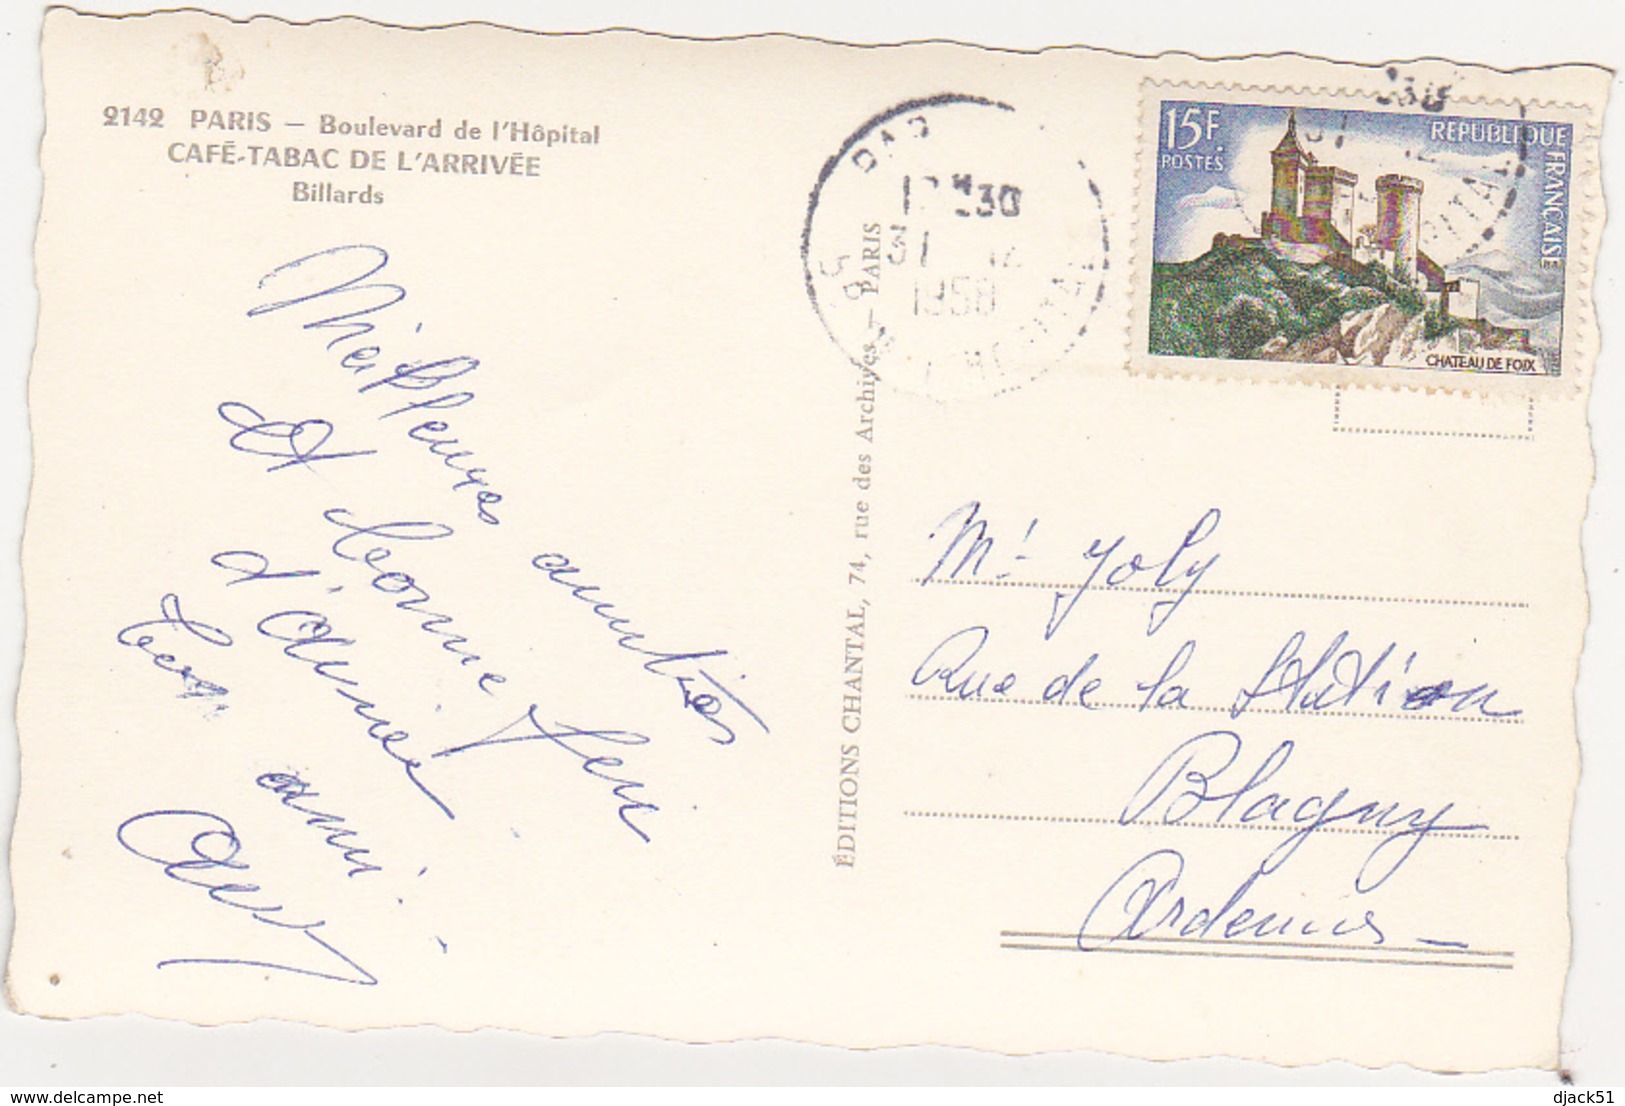 2142 PARIS – Boulevard de l'Hôpital
CAFÉ-TABAC DE L'ARRIVÉE
Billards
Meilleures amitiés
et bonne
d'année
ton ami
ÉDITIONS CHANTAL, 74, rue des Archives – PARIS
31 12
1958
15F.
POSTES
REPUBLIQUE
FRANÇAISE
CHATEAU DE FOIX
Mr Joly
Rue de la Station
Blagny
Ardennes
delcampe.net
djack51